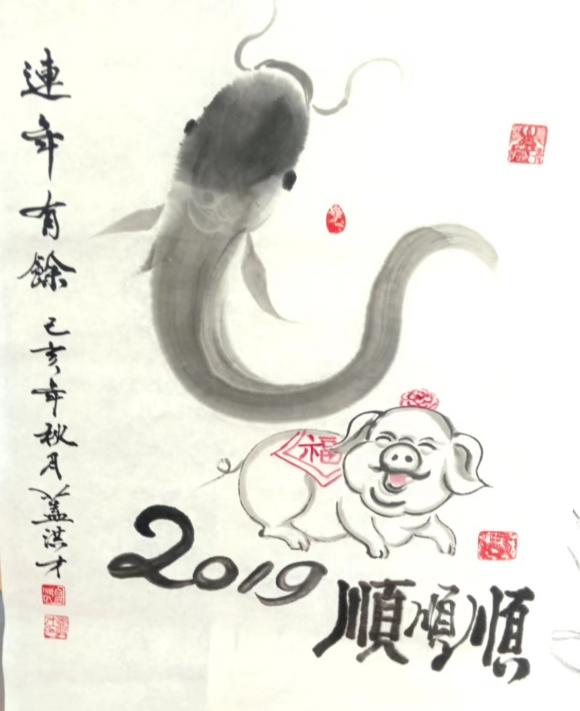 連年有餘
己亥年秋月蓋洪才
福
2019
順順順